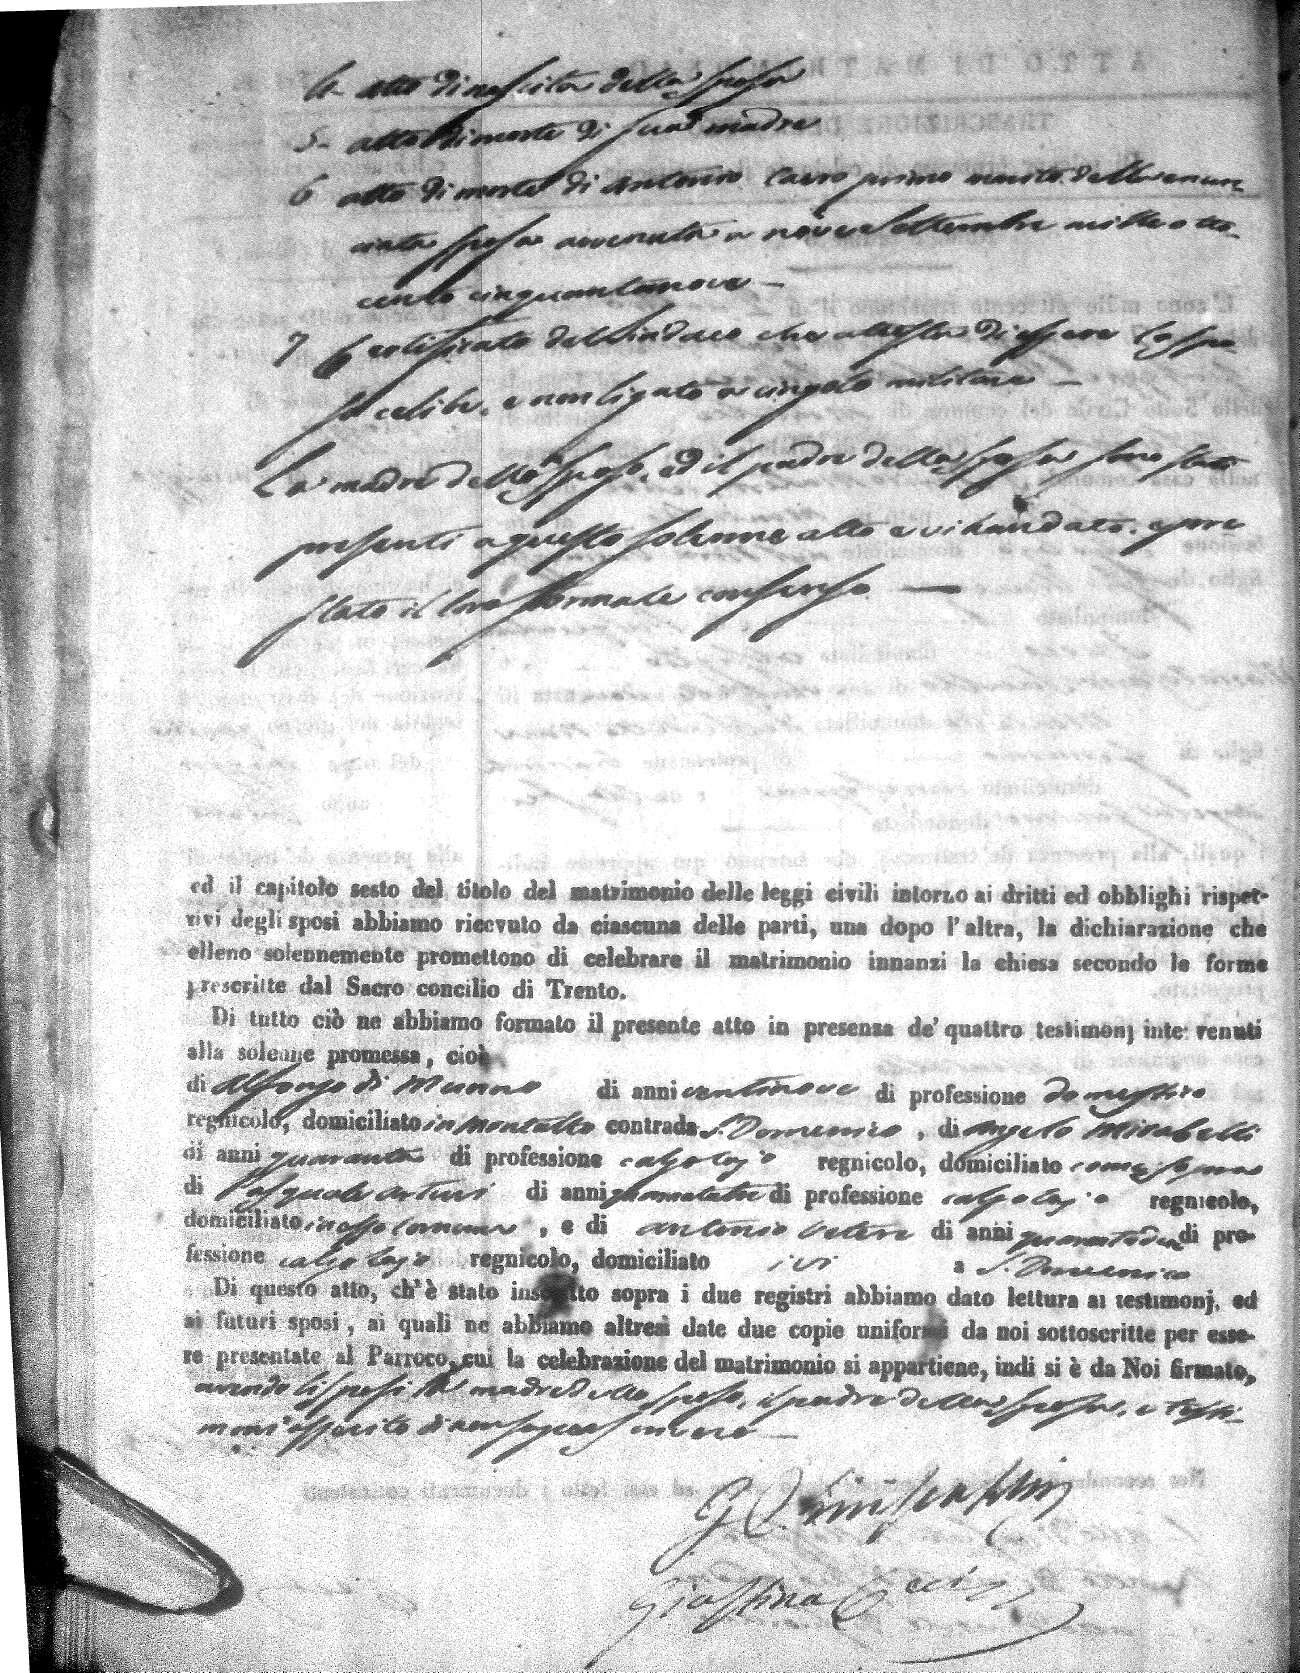 4- atto di nascita della sposa
5- atto di morte di sua madre
6 atto di morte di Antonio primo marito della enun-
ciata sposa avvenuta a nove Settembre mille otto-
cento cinquantanove -
7 Certificato del Sindaco che attesta di essere lo spo-
so celibe, e non ligato a cingolo militare -
La madre dello sposo, ed il padre della sposa sono stati
presenti a questo solenne atto e vi handato, e pre
stato il loro formale consenso —
ed il capitolo sesto del titolo del matrimonio delle leggi civili intorno ai dritti ed obblighi rispet-
tivi degli sposi abbiamo ricevuto da ciascuna delle parti, una dopo l'altra, la dichiarazione che
elleno solennemente promettono di celebrare il matrimonio innanzi la chiesa secondo le forme
prescritte dal Sacro concilio di Trento.
Di tutto ciò ne abbiamo formato il presente atto in presenza de' quattro testimonj intervenuti
alla solenne promessa, cioè
di Alfonzo di Munno di anni ventinove di professione domestico
regnicolo, domiciliato in Montalto contrada S. Domenico , di Angelo Mirabelli
di anni quaranta di professione calzolajo regnicolo, domiciliato come sopra
di Pasquale di anni di professione calzolajo regnicolo,
domiciliato in esso comune , e di Antonio Veteri di anni di pro-
fessione calzolajo regnicolo, domiciliato ivi a S. Domenico
Di questo atto, ch'è stato inscritto sopra i due registri abbiamo dato lettura ai testimonj, ed
ai futuri sposi, ai quali ne abbiamo altresì date due copie uniformi da noi sottoscritte per esse-
re presentate al Parroco, cui la celebrazione del matrimonio si appartiene, indi si è da Noi firmato,
avendo li sposi la madre dello sposo, il padre della sposa, e testi-
moni asserito di non sapere scrivere —